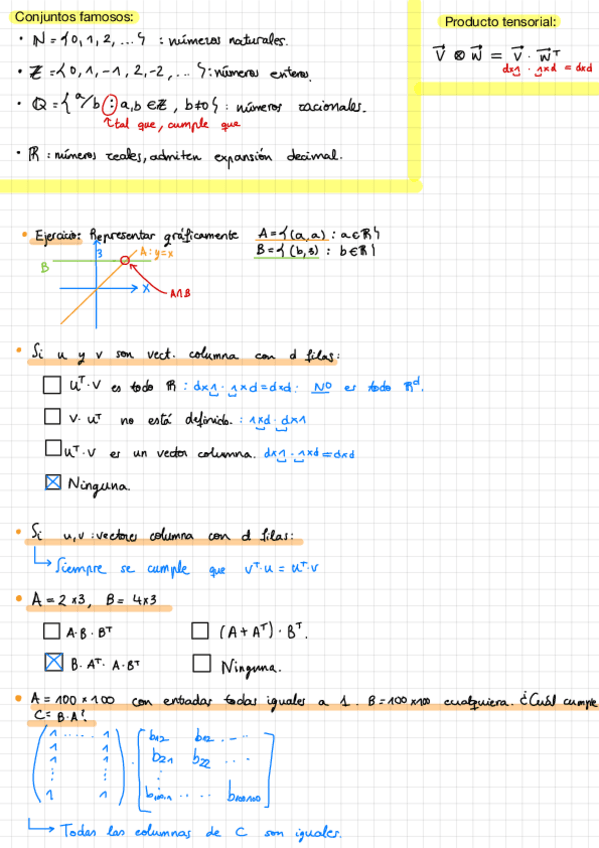 Conjuntos famosos:
• N = {0, 1, 2, ...} : números naturales.
• Z = {0, 1, -1, 2, -2, ...} : números enteros.
• Q = {a/b : a, b ∈ Z, b≠0} : números racionales.
tal que, cumple que
• R : números reales, admiten expansión decimal.
Producto tensorial:
V ⊗ W = V · W^T
dx1 · 1xd = dxd
• Ejercicio: Representar gráficamente A = {(a, a) : a ∈ R}
B = {(b, 3) : b ∈ R}
3
A : y = x
B
X
A∩B
• Si u y v son vect. columna con d filas:
U^T · V es todo R : dx1 · 1xd = dxd : NO es todo R^d.
V · U^T no está definido. : 1xd · dx1
U^T · V es un vector columna. dx1 · 1xd = dxd
Ninguna.
• Si u, v : vectores columna con d filas:
Siempre se cumple que V^T · u = u^T · v
• A = 2x3, B = 4x3
A · B · B^T
(A + A^T) · B^T.
B · A^T · A · B^T
Ninguna.
• A = 100 x 100 con entradas todas iguales a 1. B = 100 x 100 cualquiera. ¿Cuál cumple
C = B · A?
1 ..... 1 b12 b12 ....
1 1 b21 b22 ...
1 1
⋮ ⋮ ⋮
1 1 .... b100100
Todas las columnas de C son iguales.